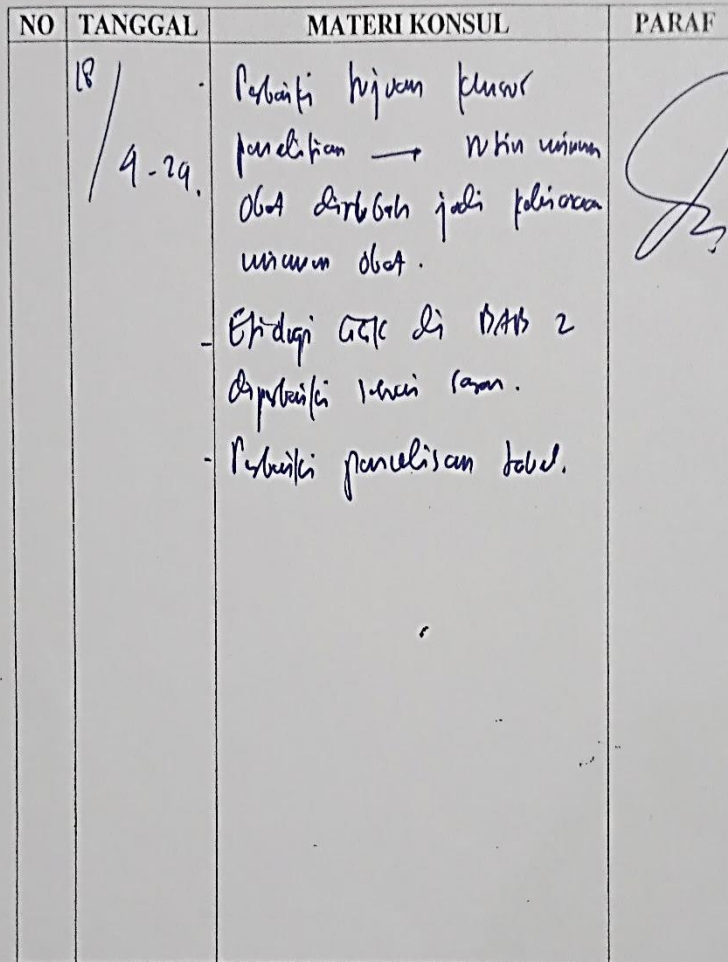 NO TANGGAL MATERI KONSUL PARAF
18/
4-24.
- Perbaiki tujuan khusus
penelitian → rutin minum
obat dirubah jadi
minum obat.
- Etiologi GGK di BAB 2
diperbaiki sesuai saran.
- Perbaiki penulisan tabel.